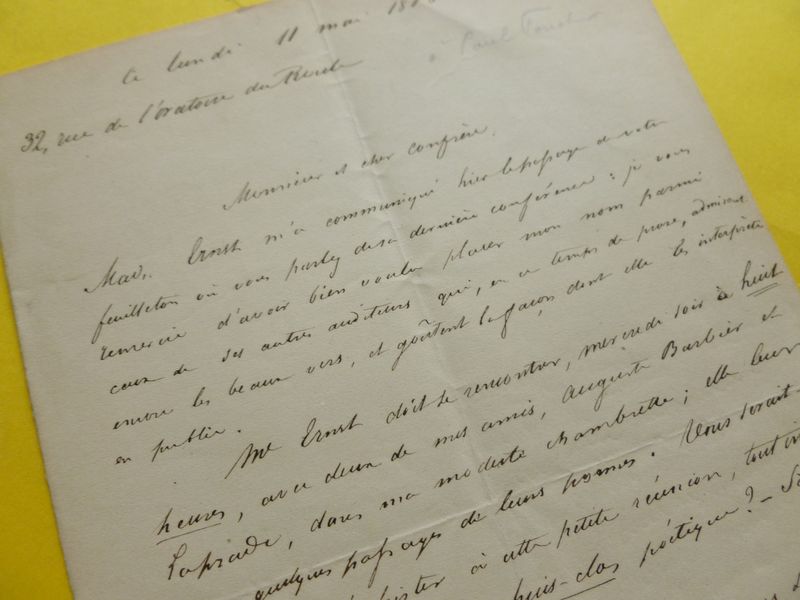 ce lundi 11 mai 18
à Paul Foucher
32, rue de l'oratoire du Roule
Monsieur et cher confrère,
Mad. Ernst m'a communiqué hier le passage de votre
feuilleton où vous parlez de sa dernière conférence : je vous
remercie d'avoir bien voulu placer mon nom parmi
ceux de ses autres auditeurs qui, en ce temps de prose, admirent
encore les beaux vers, et goûtent la façon dont elle les interprète
en public.
Me Ernst doit se rencontrer, mercredi soir à huit
heures, avec deux de mes amis, Auguste Barbier et
Laprade, dans ma modeste chambrette ; elle leur
quelques passages de leurs poèmes. Vous serait-
à cette petite réunion, tout in
huis-clos poétique ? –